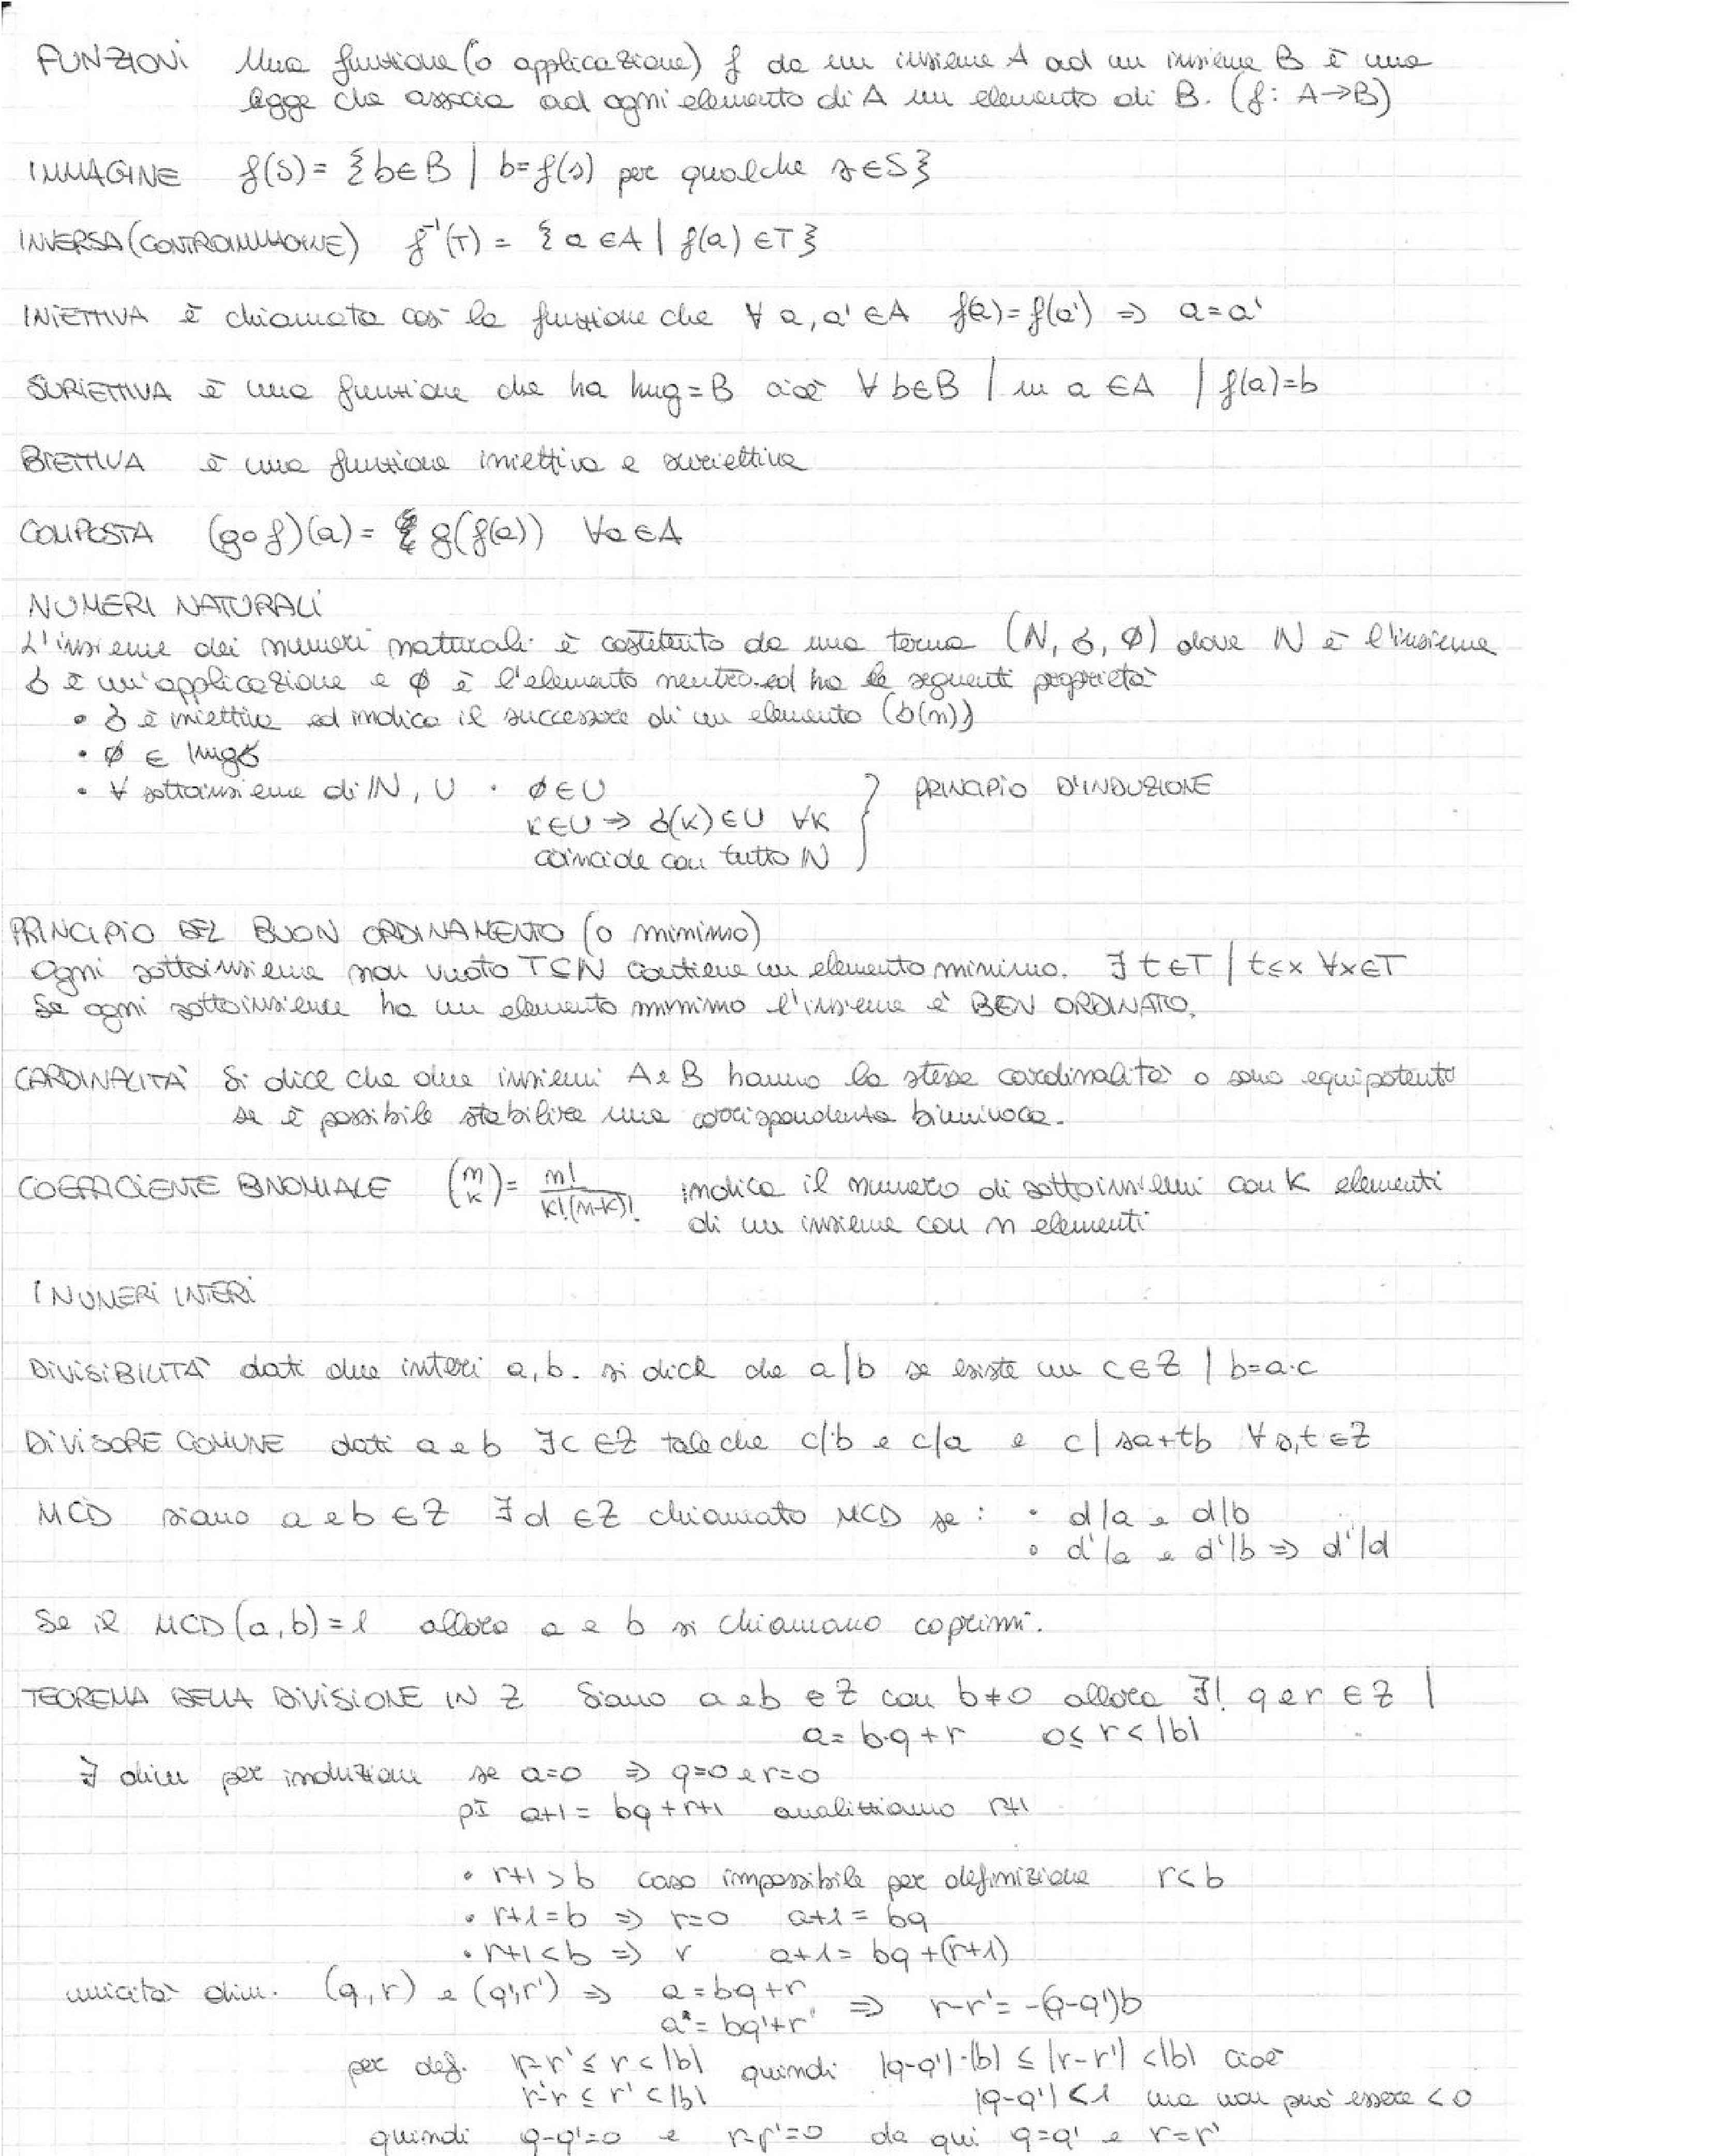 FUNZIONI Una funzione (o applicazione) f da un insieme A ad un insieme B è una
legge che associa ad ogni elemento di A un elemento di B. (f: A→B)
IMMAGINE f(S) = {b∈B | b=f(s) per qualche s∈S}
INVERSA (CONTROIMMAGINE) f⁻¹(T) = {a∈A | f(a)∈T}
INIETTIVA è chiamata così la funzione che ∀ a,a'∈A f(a)=f(a') ⇒ a=a'
SURIETTIVA è una funzione che ha Img=B cioè ∀ b∈B | un a∈A | f(a)=b
BIETTIVA è una funzione iniettiva e suriettiva
COMPOSTA (g∘f)(a) = g(f(a)) ∀a∈A
NUMERI NATURALI
L'insieme dei numeri naturali è costituito da una terna (N, σ, φ) dove N è l'insieme
σ è un'applicazione e φ è l'elemento neutro ed ha le seguenti proprietà
• σ è iniettiva ed indica il successore di un elemento (σ(n))
• φ ∈ Imgσ
• ∀ sottoinsieme di N, U • φ∈U } PRINCIPIO D'INDUZIONE
k∈U ⇒ σ(k)∈U ∀k
coincide con tutto N
PRINCIPIO DEL BUON ORDINAMENTO (o minimo)
Ogni sottoinsieme non vuoto T⊆N contiene un elemento minimo. ∃ t∈T | t≤x ∀x∈T
Se ogni sottoinsieme ha un elemento minimo l'insieme è BEN ORDINATO.
CARDINALITÀ Si dice che due insiemi A e B hanno la stessa cardinalità o sono equipotenti
se è possibile stabilire una corrispondenza biunivoca.
COEFFICIENTE BINOMIALE (n k) = n!/k!(n-k)! indica il numero di sottoinsiemi con k elementi
di un insieme con n elementi
I NUMERI INTERI
DIVISIBILITÀ dati due interi a,b. si dice che a|b se esiste un c∈Z | b=a·c
DIVISORE COMUNE dati a e b ∃c∈Z tale che c|b e c|a e c|sa+tb ∀s,t∈Z
MCD siano a e b∈Z ∃d∈Z chiamato MCD se: • d|a e d|b
• d'|a e d'|b ⇒ d'|d
Se il MCD(a,b)=1 allora a e b si chiamano coprimi.
TEOREMA DELLA DIVISIONE IN Z Siano a e b∈Z con b≠0 allora ∃! q e r∈Z |
a=b·q+r 0≤r<|b|
∃ dim per induzione se a=0 ⇒ q=0 e r=0
pI a+1=bq+r+1 analizziamo r+1
• r+1>b caso impossibile per definizione r<b
• r+1=b ⇒ r=0 a+1=bq
• r+1<b ⇒ r a+1=bq+(r+1)
unicità dim. (q,r) e (q',r') ⇒ a=bq+r ⇒ r-r'=-(q-q')b
a=bq'+r'
per def. r-r'≤r<|b| quindi |q-q'|·|b|≤|r-r'|<|b| cioè
r'-r≤r'<|b| |q-q'|<1 ma non può essere <0
quindi q-q'=0 e r-r'=0 da qui q=q' e r=r'